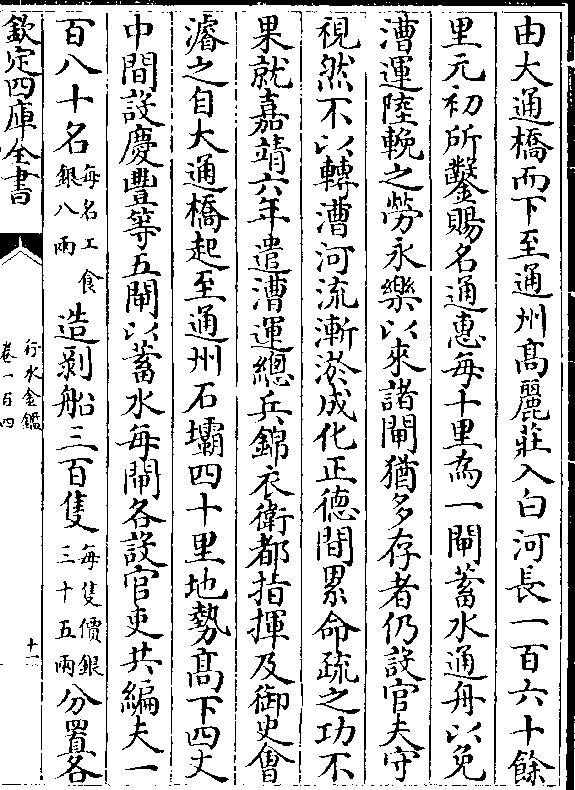 由大通橋而下至通州髙麗莊入白河長一百六十餘
里元初所鑿賜名通惠每十里為一閘蓄水通舟以免
漕運陸輓之勞永樂以來諸閘猶多存者仍設官夫守
視然不以轉漕河流漸淤成化正德間累命疏之功不
果就嘉靖六年遣漕運總兵錦衣衛都指揮及御史會
濬之自大通橋起至通州石壩四十里地勢髙下四丈
中間設慶豐等五閘以蓄水每閘各設官吏共編夫一
百八十名每名工食銀八兩造剥船三百隻每隻價銀三十五兩分置各
欽定四庫全書
行水金鑑
卷一百四
十一